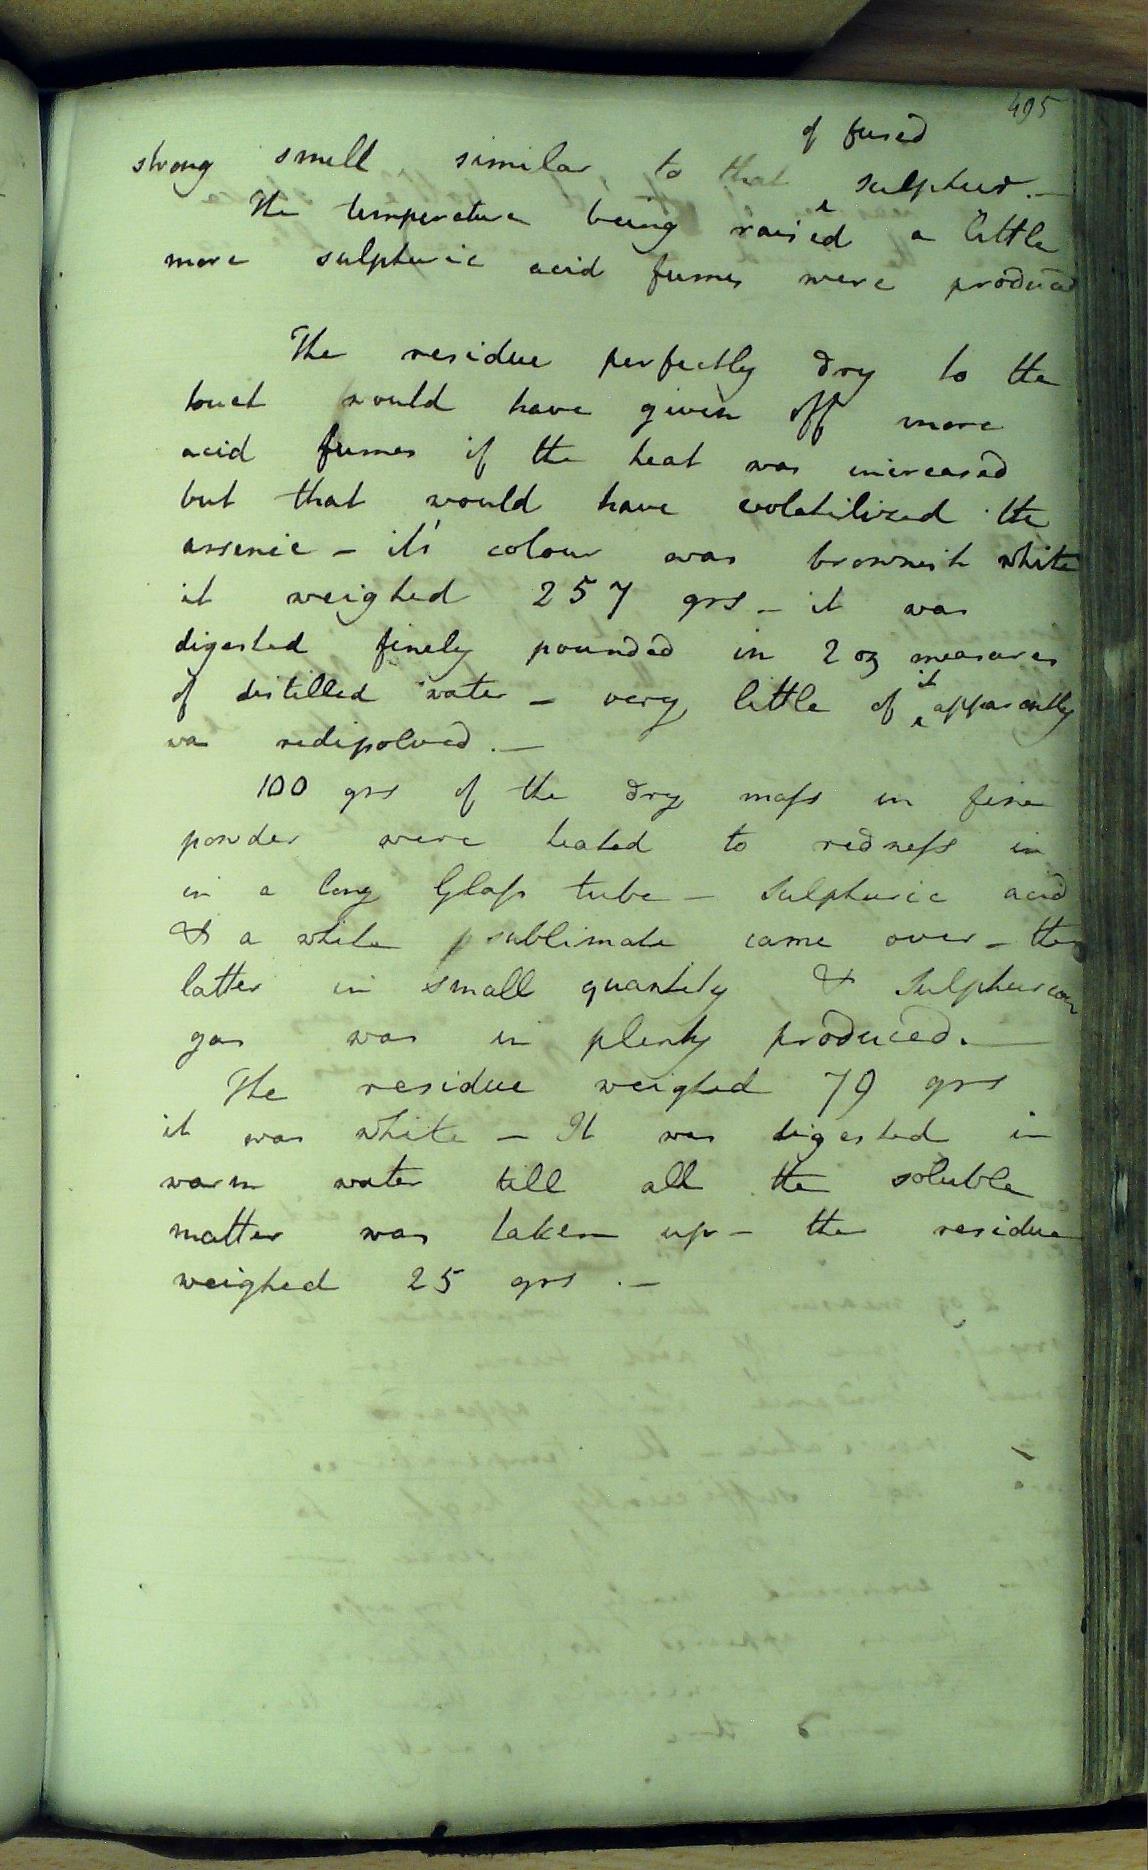 495
strong smell similar to that of fused sulphur.—
The temperature being raised a little
more sulphuric acid fumes were produced
The residue perfectly dry to the
touch would have given off more
acid fumes if the heat was increased
but that would have volatilized the
arsenic — it's colour was brownish white
it weighed 257 grs — it was
digested finely pounded in 2 oz measures
of distilled water — very little of it apparently
was redissolved.—
100 grs of the dry mass in fine
powder were heated to redness in
in a long Glass tube — Sulphuric acid
& a white sublimate came over — the
latter in small quantity & Sulphurous
gas was in plenty produced.—
The residue weighed 79 grs
it was white — It was digested in
warm water till all the soluble
matter was taken up — the residue
weighed 25 grs.—